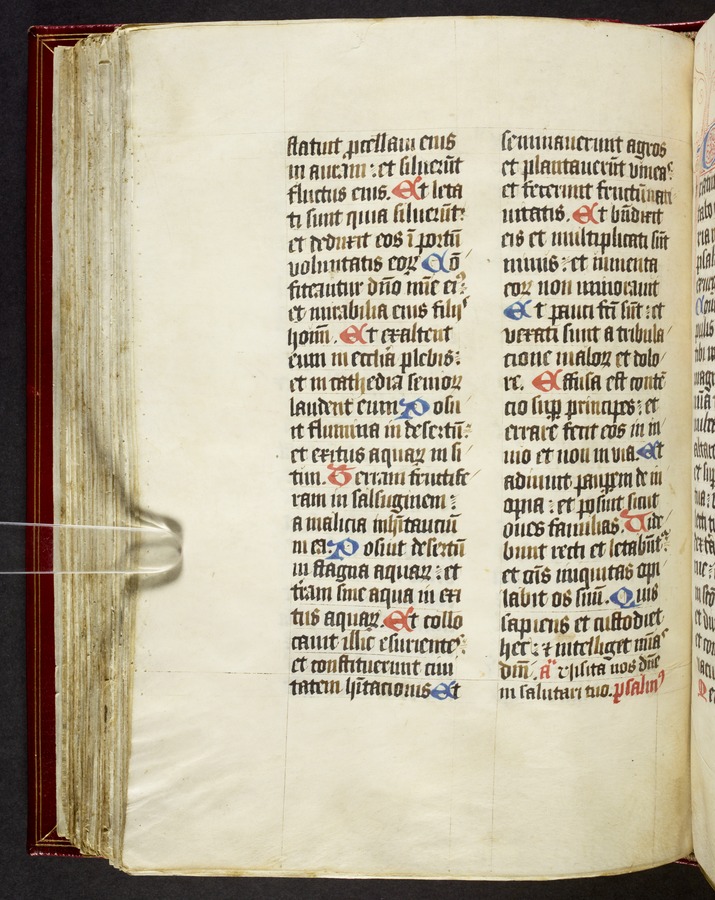 statuit ꝓcellam eius
in auram : et siluerūt
fluctus eius. Et leta
ti sunt quia siluerūt:
et deduxit eos ī portū
voluntatis eoꝝ Cō
fiteantur dn̄o mīe eiꝰ
et mirabilia eius filijs
hoīm. Et exaltent
eum in ecclīa plebis:
et in cathedra senioꝝ
laudent eum Posu
it flumina in desertū:
et exitus aquaꝝ in si
tim. Terram fructife
ram in salsuginem :
a malicia inhītanciū
in ea: Posuit desertū
in stagna aquaꝝ : et
trām sine aqua in exi
tus aquaꝝ. Et collo
cauit illic esurientes:
et constituerunt ciui
tatem hītacionis Et
seminauerunt agros
et plantauerūt vineas:
et fecerunt fructū nati
uitatis. Et bn̄dixit
eis et multiplicati sūt
nimis : et iumenta
eoꝝ non minorauit
Et pauci fcī sūt : et
vexati sunt a tribula
cione maloꝝ et dolo
re. Effusa est contē
cio suꝑ principes : et
errare fecit eos in in
uio et non in via. Et
adiuuit pauꝑem de in
opia : et posuit sicut
oues familias Vide
bunt recti et letabūt:
et oīs iniquitas opi
labit os suū. Quis
sapiens et custodiet
hec : ⁊ intelliget mīas
dn̄i. a͞ Visita nos dn̄e
in salutari tuo. psalmꝰ